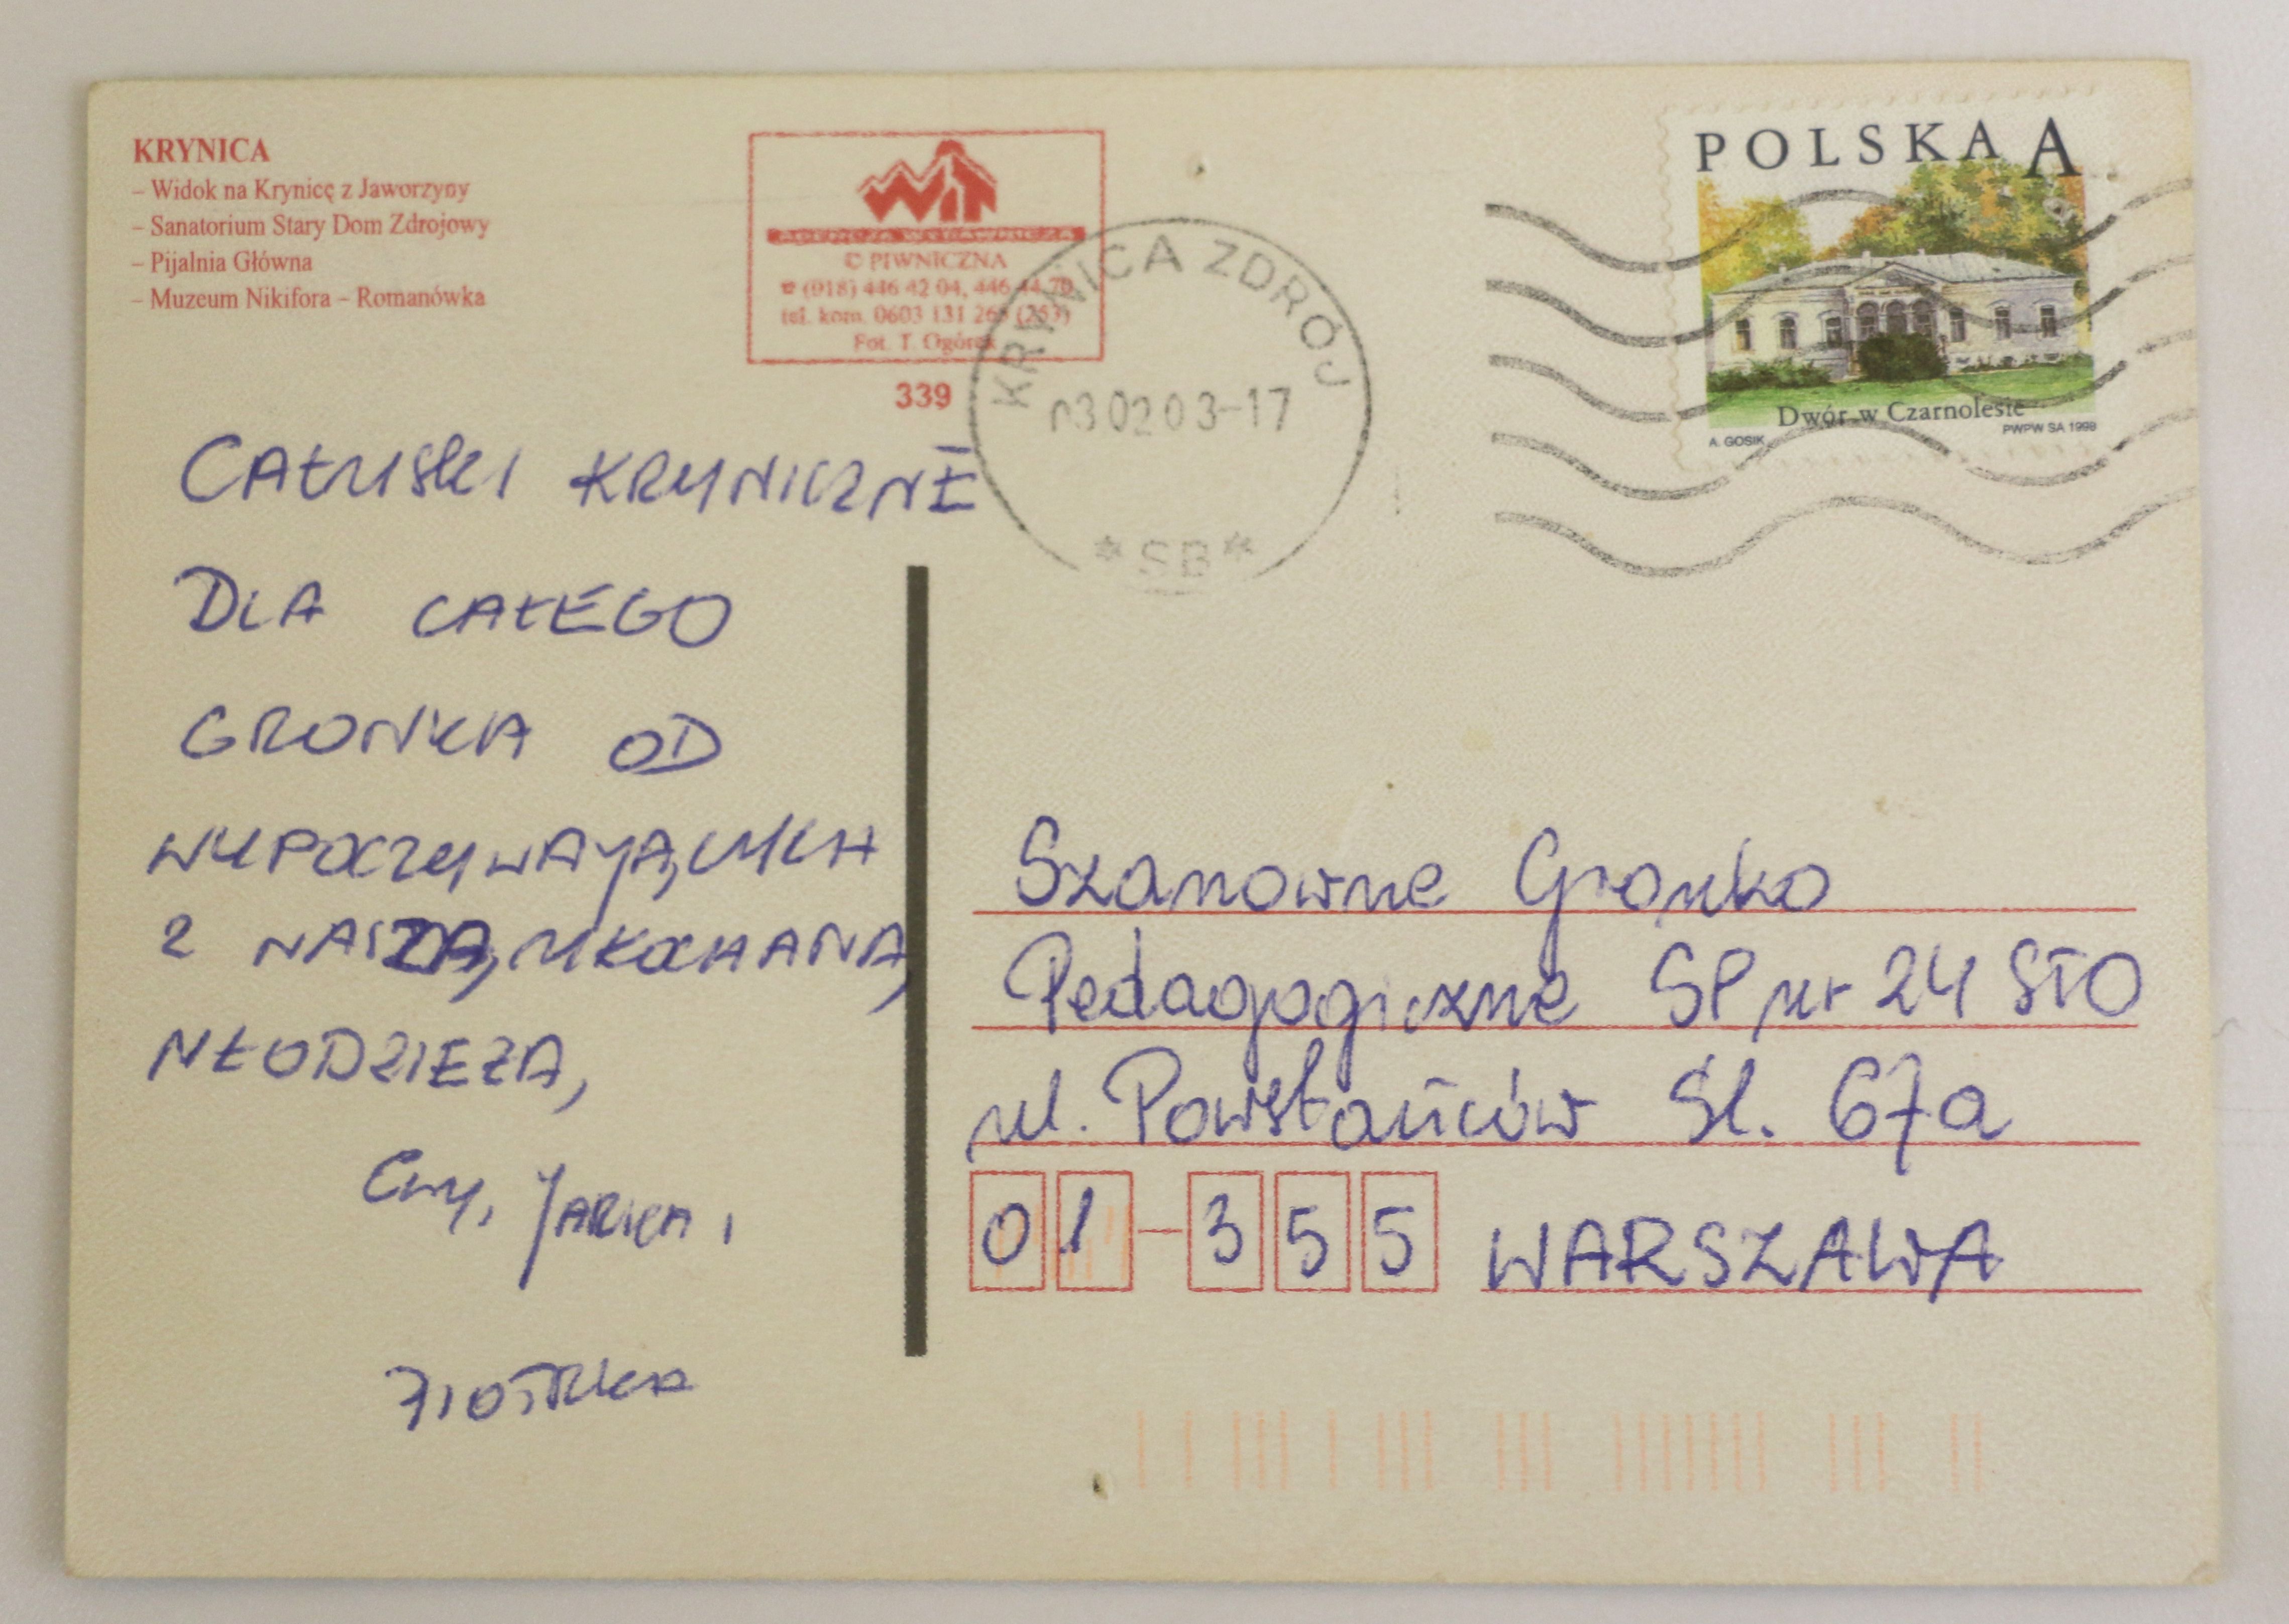 KRYNICA
– Widok na Krynicę z Jaworzyny
– Sanatorium Stary Dom Zdrojowy
– Pijalnia Główna
– Muzeum Nikifora – Romanówka
WiT
AGENCJA WYDAWNICZA
© PIWNICZNA
☎ (018) 446 42 04, 446 44 70
tel. kom. 0603 131 265 (263)
Fot. T. Ogórek
339
KRYNICA ZDRÓJ
030203-17
*SB*
POLSKA A
Dwór w Czarnolesie
A. GOSIK PWPW SA 1998
CAŁUSKI KRYNICZNE
DLA CAŁEGO
GRONKA OD
WYPOCZYWAJĄCYCH
Z NASZĄ UKOCHANĄ
MŁODZIEŻĄ
Ewy, JARKA,
PIOTRKA
Szanowne Gronko
Pedagogiczne SP nr 24 STO
ul. Powstańców Śl. 67a
01-355 WARSZAWA